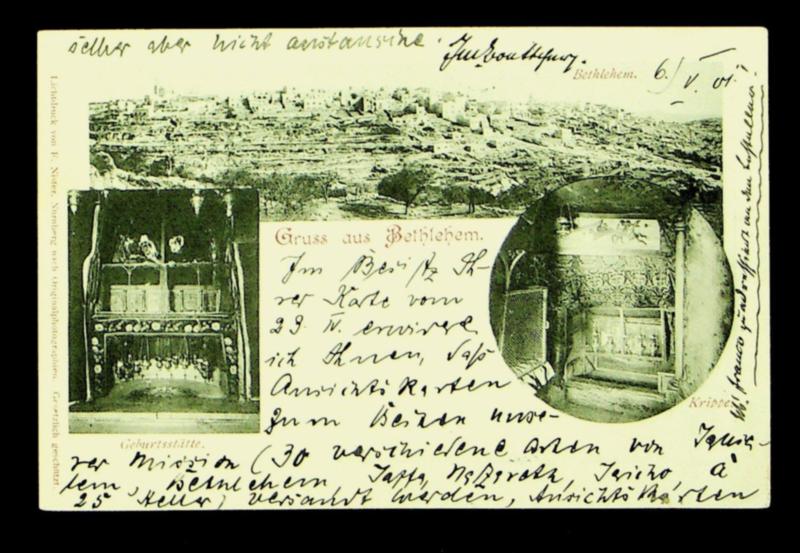 selber aber nicht
Bethlehem.
6/V 01
Gruss aus Bethlehem.
Im Besitz Ih-
rer Karte vom
29. IV. erwidere
ich Ihnen, daß
Ansichtskarten
zum Besten unse-
rer Mission (30 verschiedene Arten von Jerusa-
lem, Bethlehem, Jaffa, Nazareth, Jericho, à
25 Heller) versandt werden, Ansichtskarten
Geburtsstätte.
Krippe.
Lichtdruck von E. Nister, Nürnberg nach Originalphotographien. Gesetzlich geschützt.